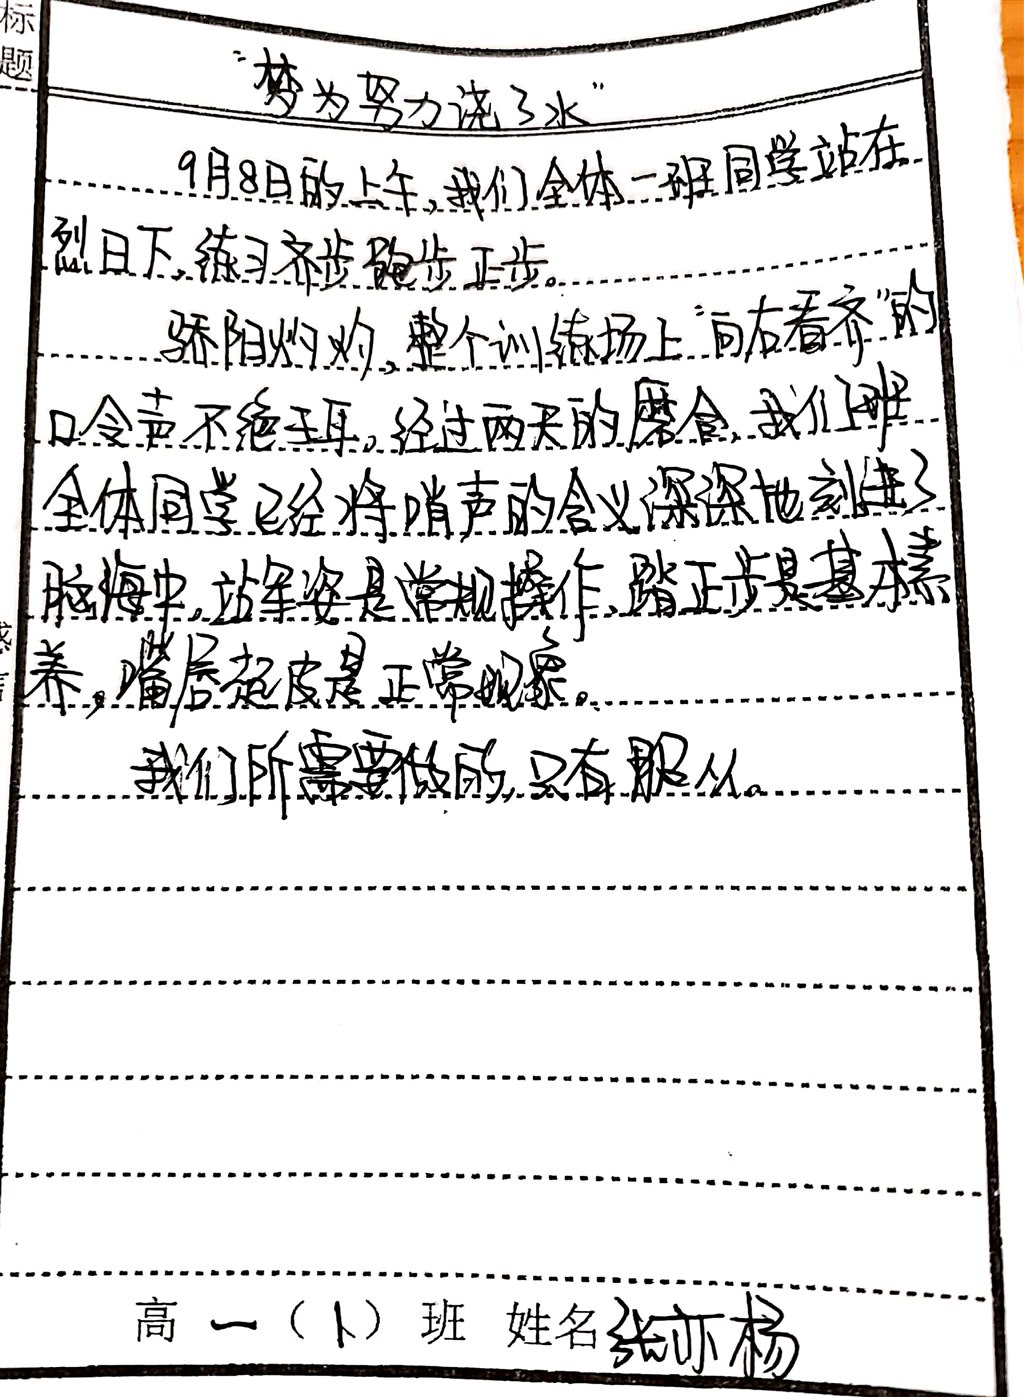 标
题
"梦为努力浇了水"
9月8日的上午,我们全体一班同学站在
烈日下,练习齐步跑步正步。
骄阳灼灼,整个训练场上"向右看齐"的
口令声不绝于耳。经过两天的磨合,我们班
全体同学已经将哨声的含义深深地刻进了
脑海中,站军姿是常规操作,踏正步是基本素
养,嘴唇起皮是正常现象。
我们所需要做的,只有服从。
高一(1)班 姓名张亦杨